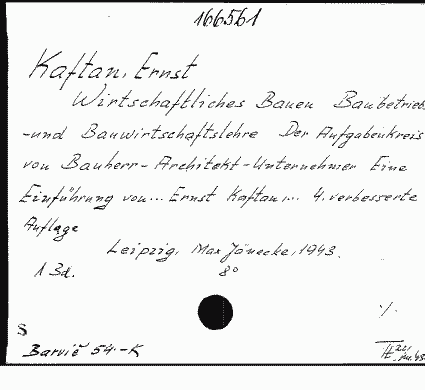 166561
Kaftan, Ernst
Wirtschaftliches Bauen Baubetriebs
-und Bauwirtschaftslehre Der Aufgabenkreis
von Bauherr-Architekt-Unternehmer Eine
Einführung von... Ernst Kaftan,... 4. verbesserte
Auflage
Leipzig, Max Jänecke, 1943.
1 Bd. 8°
./.
S
Barvič 54.-K